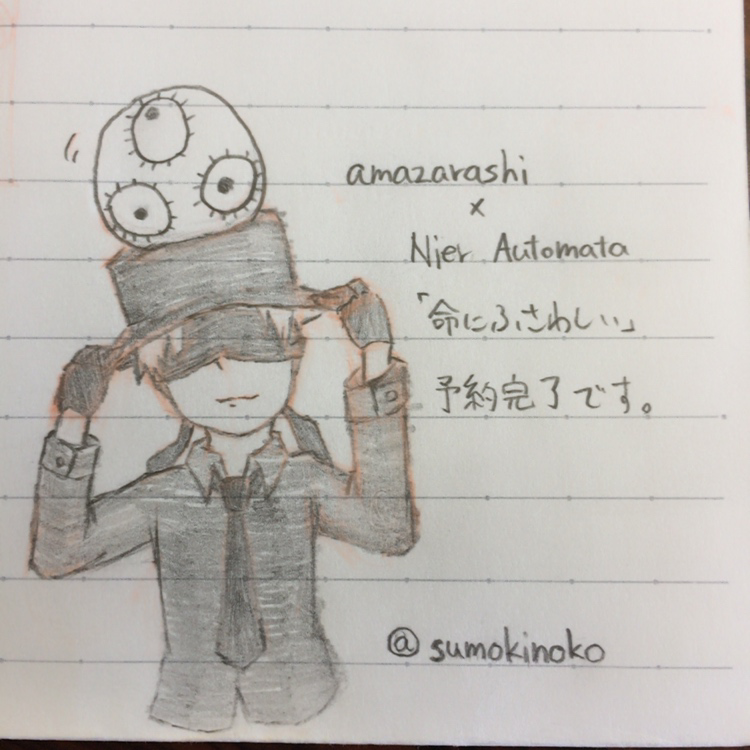 amazarashi
x
Nier Automata
「命にふさわしい」
予約完了です。
@sumokinoko